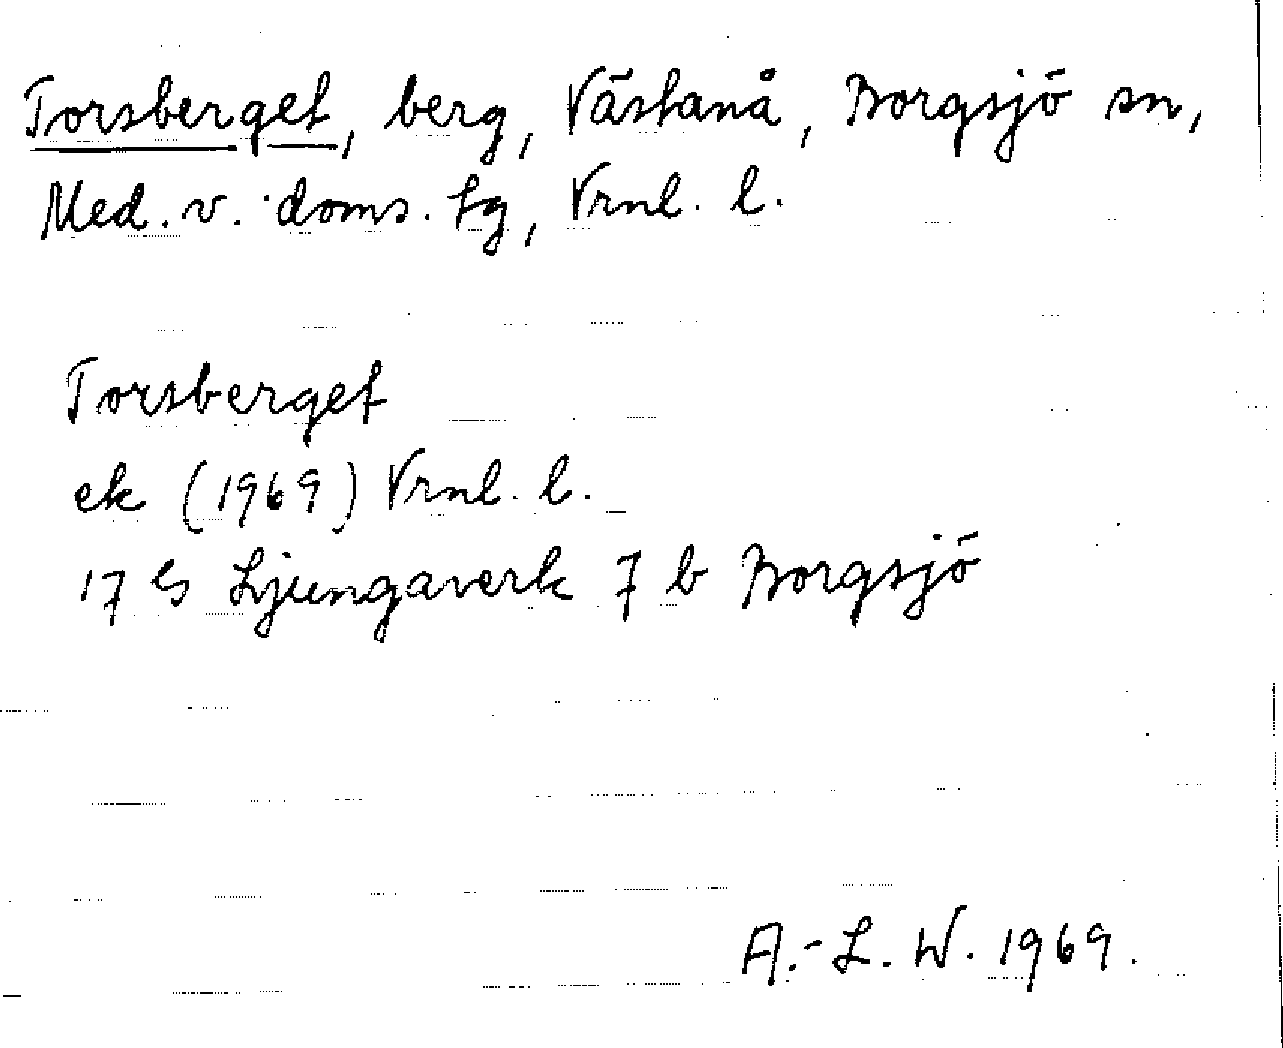 Torsberget, berg, Västanå, Borgsjö sn,
Med. v. doms. tg, Vrnl. l.
Torsberget
ek (1969) Vrnl. l.
17 G Ljungaverk 7 b Borgsjö
A.-L. W. 1969.